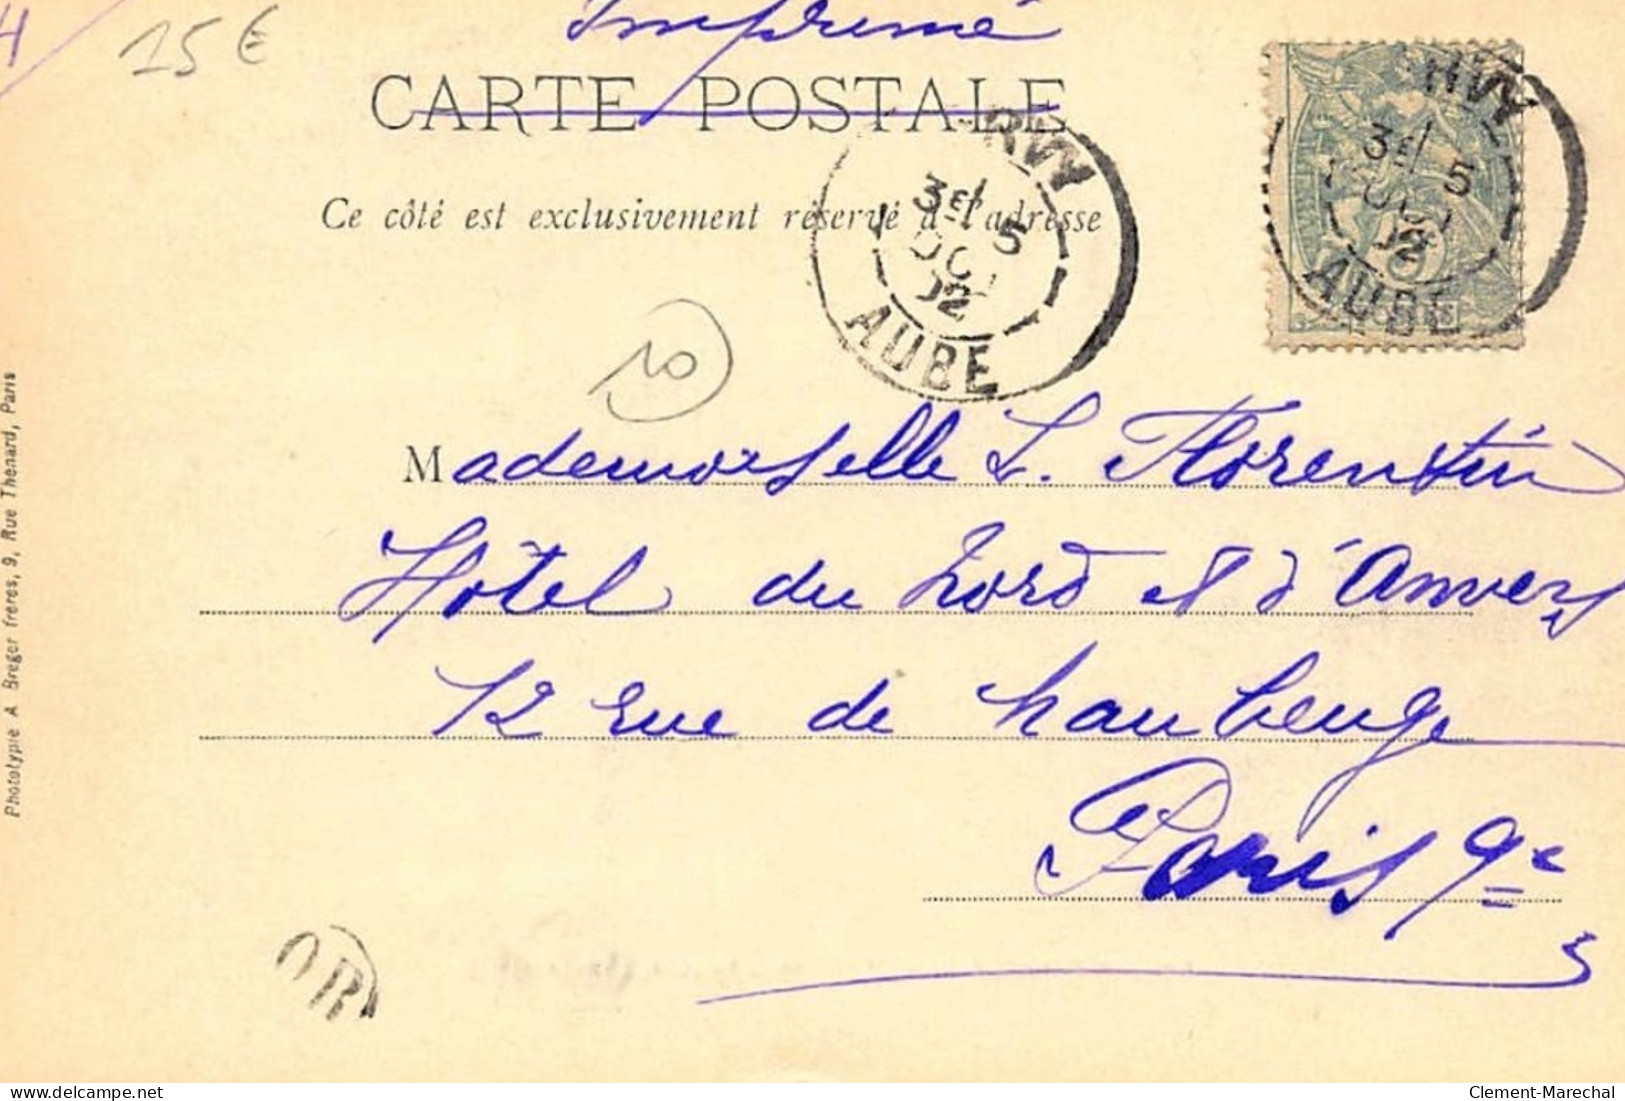 Imprimé
15 €
CARTE POSTALE
Ce côté est exclusivement réservé à l'adresse
RVY
3E
5
OCT
02
AUBE
RVY
3E
5
OCT
02
AUBE
10
Mademoiselle L. Florentin
Hôtel du Nord et d'Anvers
12 rue de Maubeuge
Paris 9e
OR
Phototypie A Breger frères, 9, Rue Thénard, Paris
delcampe.net
Clement-Marechal